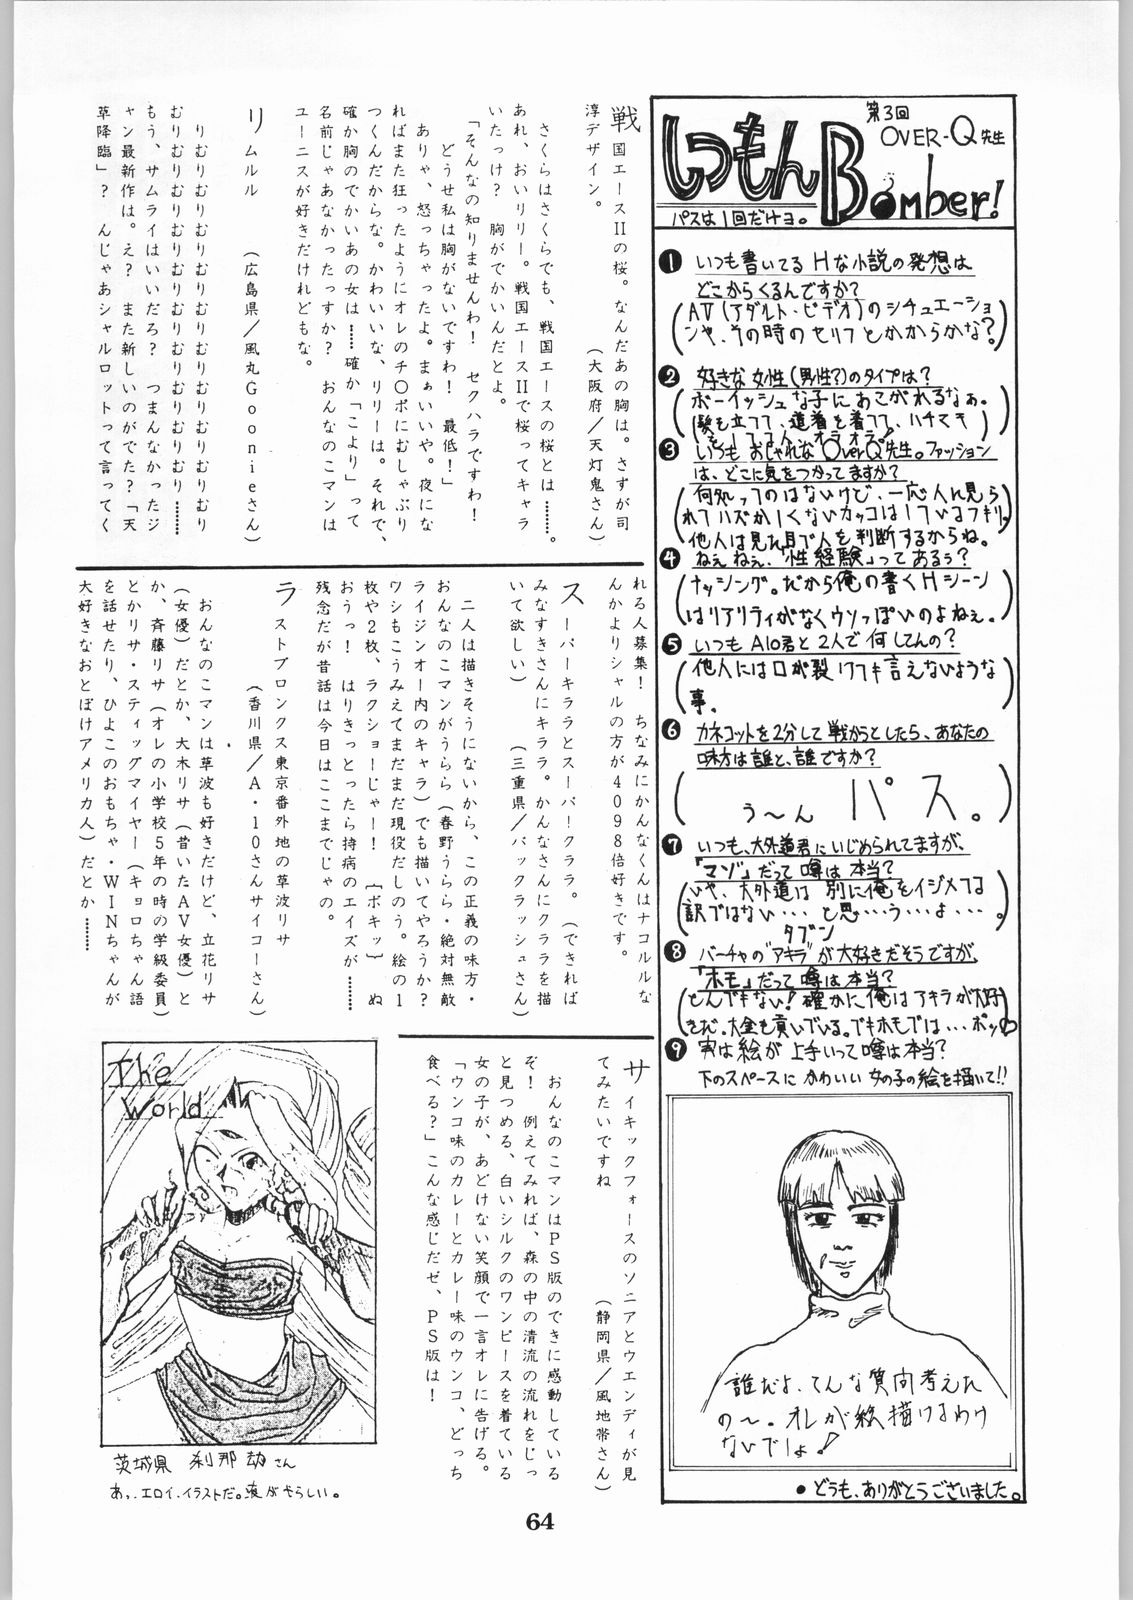 第3回
OVER-Q先生
しつもんBomber!
パスは1回だけョ。
❶ いつも書いてるHな小説の発想は
どこからくるんですか?
(AV(アダルト・ビデオ)のシチュエーショ
ンや、その時のセリフとかからかな?)
❷ 好きな女性(男性?)のタイプは?
(ボーイッシュな子にあこがれるなぁ。
髪を立てて、道着を着てて、ハチマキ
❸ いつもおしゃれなOverQ先生。ファッション
は、どこに気をつかってますか?
(何知ってのはないけど、一応人に見ら
れてハズかしくないカッコはしているつもり。
他人は見た目で人を判断するからね。
❹ ねぇねぇ、「性経験」ってあるぅ?
(ナッシング。だから俺の書くHシーン
はリアリティがなくウソっぽいのよねぇ。)
❺ いつもA10君と2人で何してんの?
(他人には口が裂けても言えないような
事。)
❻ カネコットを2分して戦かうとしたら、あなたの
味方は誰と、誰ですか?
(う〜ん パス。)
❼ いつも、大外道君にいじめられてますが、
「マゾ」だって噂は本当?
(いや、大外道は別に俺をイジメてる
訳ではない…と思…う…よ…。)
タブン
❽ バーチャの"アキラ"が大好きだそうですが、
「ホモ」だって噂は本当?
(とんでもない!確かに俺はアキラが大好
きだ。大金も貢いでいる。でもホモでは…ポッ♡)
❾ 実は絵が上手いって噂は本当?
下のスペースにかわいい女の子の絵を描いて!!
誰だよ、こんな質問考えた
の〜。オレが絵描けるわけ
ないでしょ!
●どうも、ありがとうございました。
戦国エースIIの桜。なんだあの胸は。さすが司
淳デザイン。 (大阪府/天灯鬼さん)
さくらはさくらでも、戦国エースの桜とは………。
あれ、おいリリー。戦国エースIIで桜ってキャラ
いたっけ? 胸がでかいんだとよ。
「そんなの知りませんわ! セクハラですわ!
どうせ私は胸がないですわ! 最低!」
ありゃ、怒っちゃったよ。まぁいいや。夜にな
ればまた狂ったようにオレのチ〇ポにむしゃぶり
つくんだからな。かわいいな、リリーは。それで、
確か胸のでかいあの女は……確か「こより」って
名前じゃあなかったっすか? おんなのこマンは
ユーニスが好きだけれどもな。
リムルル (広島県/風丸Goonieさん)
りむりむりむりむりむりむりむりむりむりむり
むりむりむりむりむりむりむりむりむり………
もう、サムライはいいだろ? つまんなかったジ
ャン最新作は。え? また新しいのがでた?「天
草降臨」? んじゃあシャルロットって言ってく
れる人募集! ちなみにかんなくんはナコルルな
んかよりシャルの方が4098倍好きです。
スーパーキララとスーパ!クララ。(できれば
みなすきさんにキララ。かんなさんにクララを描
いて欲しい) (三重県/バックラッシュさん)
二人は描きそうにないから、この正義の味方・
おんなのこマンがうらら(春野うらら・絶対無敵
ライジンオー内のキャラ)でも描いてやろうか?
ワシもこうみえてまだまだ現役だしのう。絵の1
枚や2枚、ラクショーじゃー! [ボキッ] ぬ
おうっ! はりきっとったら持病のエイズが………
残念だが昔話は今日はここまでじゃの。
ラストブロンクス東京番外地の草波リサ
(香川県/A・10さんサイコーさん)
おんなのこマンは草波も好きだけど、立花リサ
(女優)だとか、大木リサ(昔いたAV女優)と
か、斉藤リサ(オレの小学校5年の時の学級委員)
とかリサ・スティッグマイヤー(キョロちゃん語
を話せたり、ひよこのおもちゃ・WINちゃんが
大好きなおとぼけアメリカ人)だとか………
サイキックフォースのソニアとウエンディが見
てみたいですね (静岡県/風地帯さん)
おんなのこマンはPS版のできに感動している
ぞ! 例えてみれば、森の中の清流の流れをじっ
と見つめる、白いシルクのワンピースを着ている
女の子が、あどけない笑顔で一言オレに告げる。
「ウンコ味のカレーとカレー味のウンコ、どっち
食べる?」こんな感じだゼ、PS版は!
The
World
茨城県 刹那劫さん
あっ、エロイ、イラストだ。液がやらしい。
64